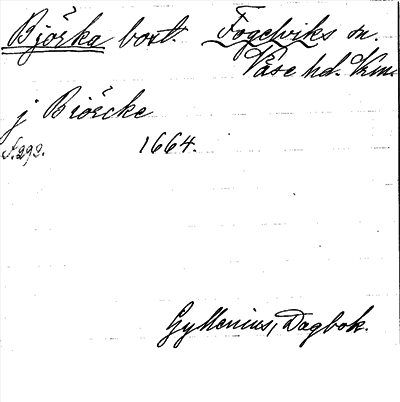 Björka bost. Fogelviks sn.
Väse hd. Vrml.
j Biörcke
s. 292. 1664.
Gyllenius, Dagbok.